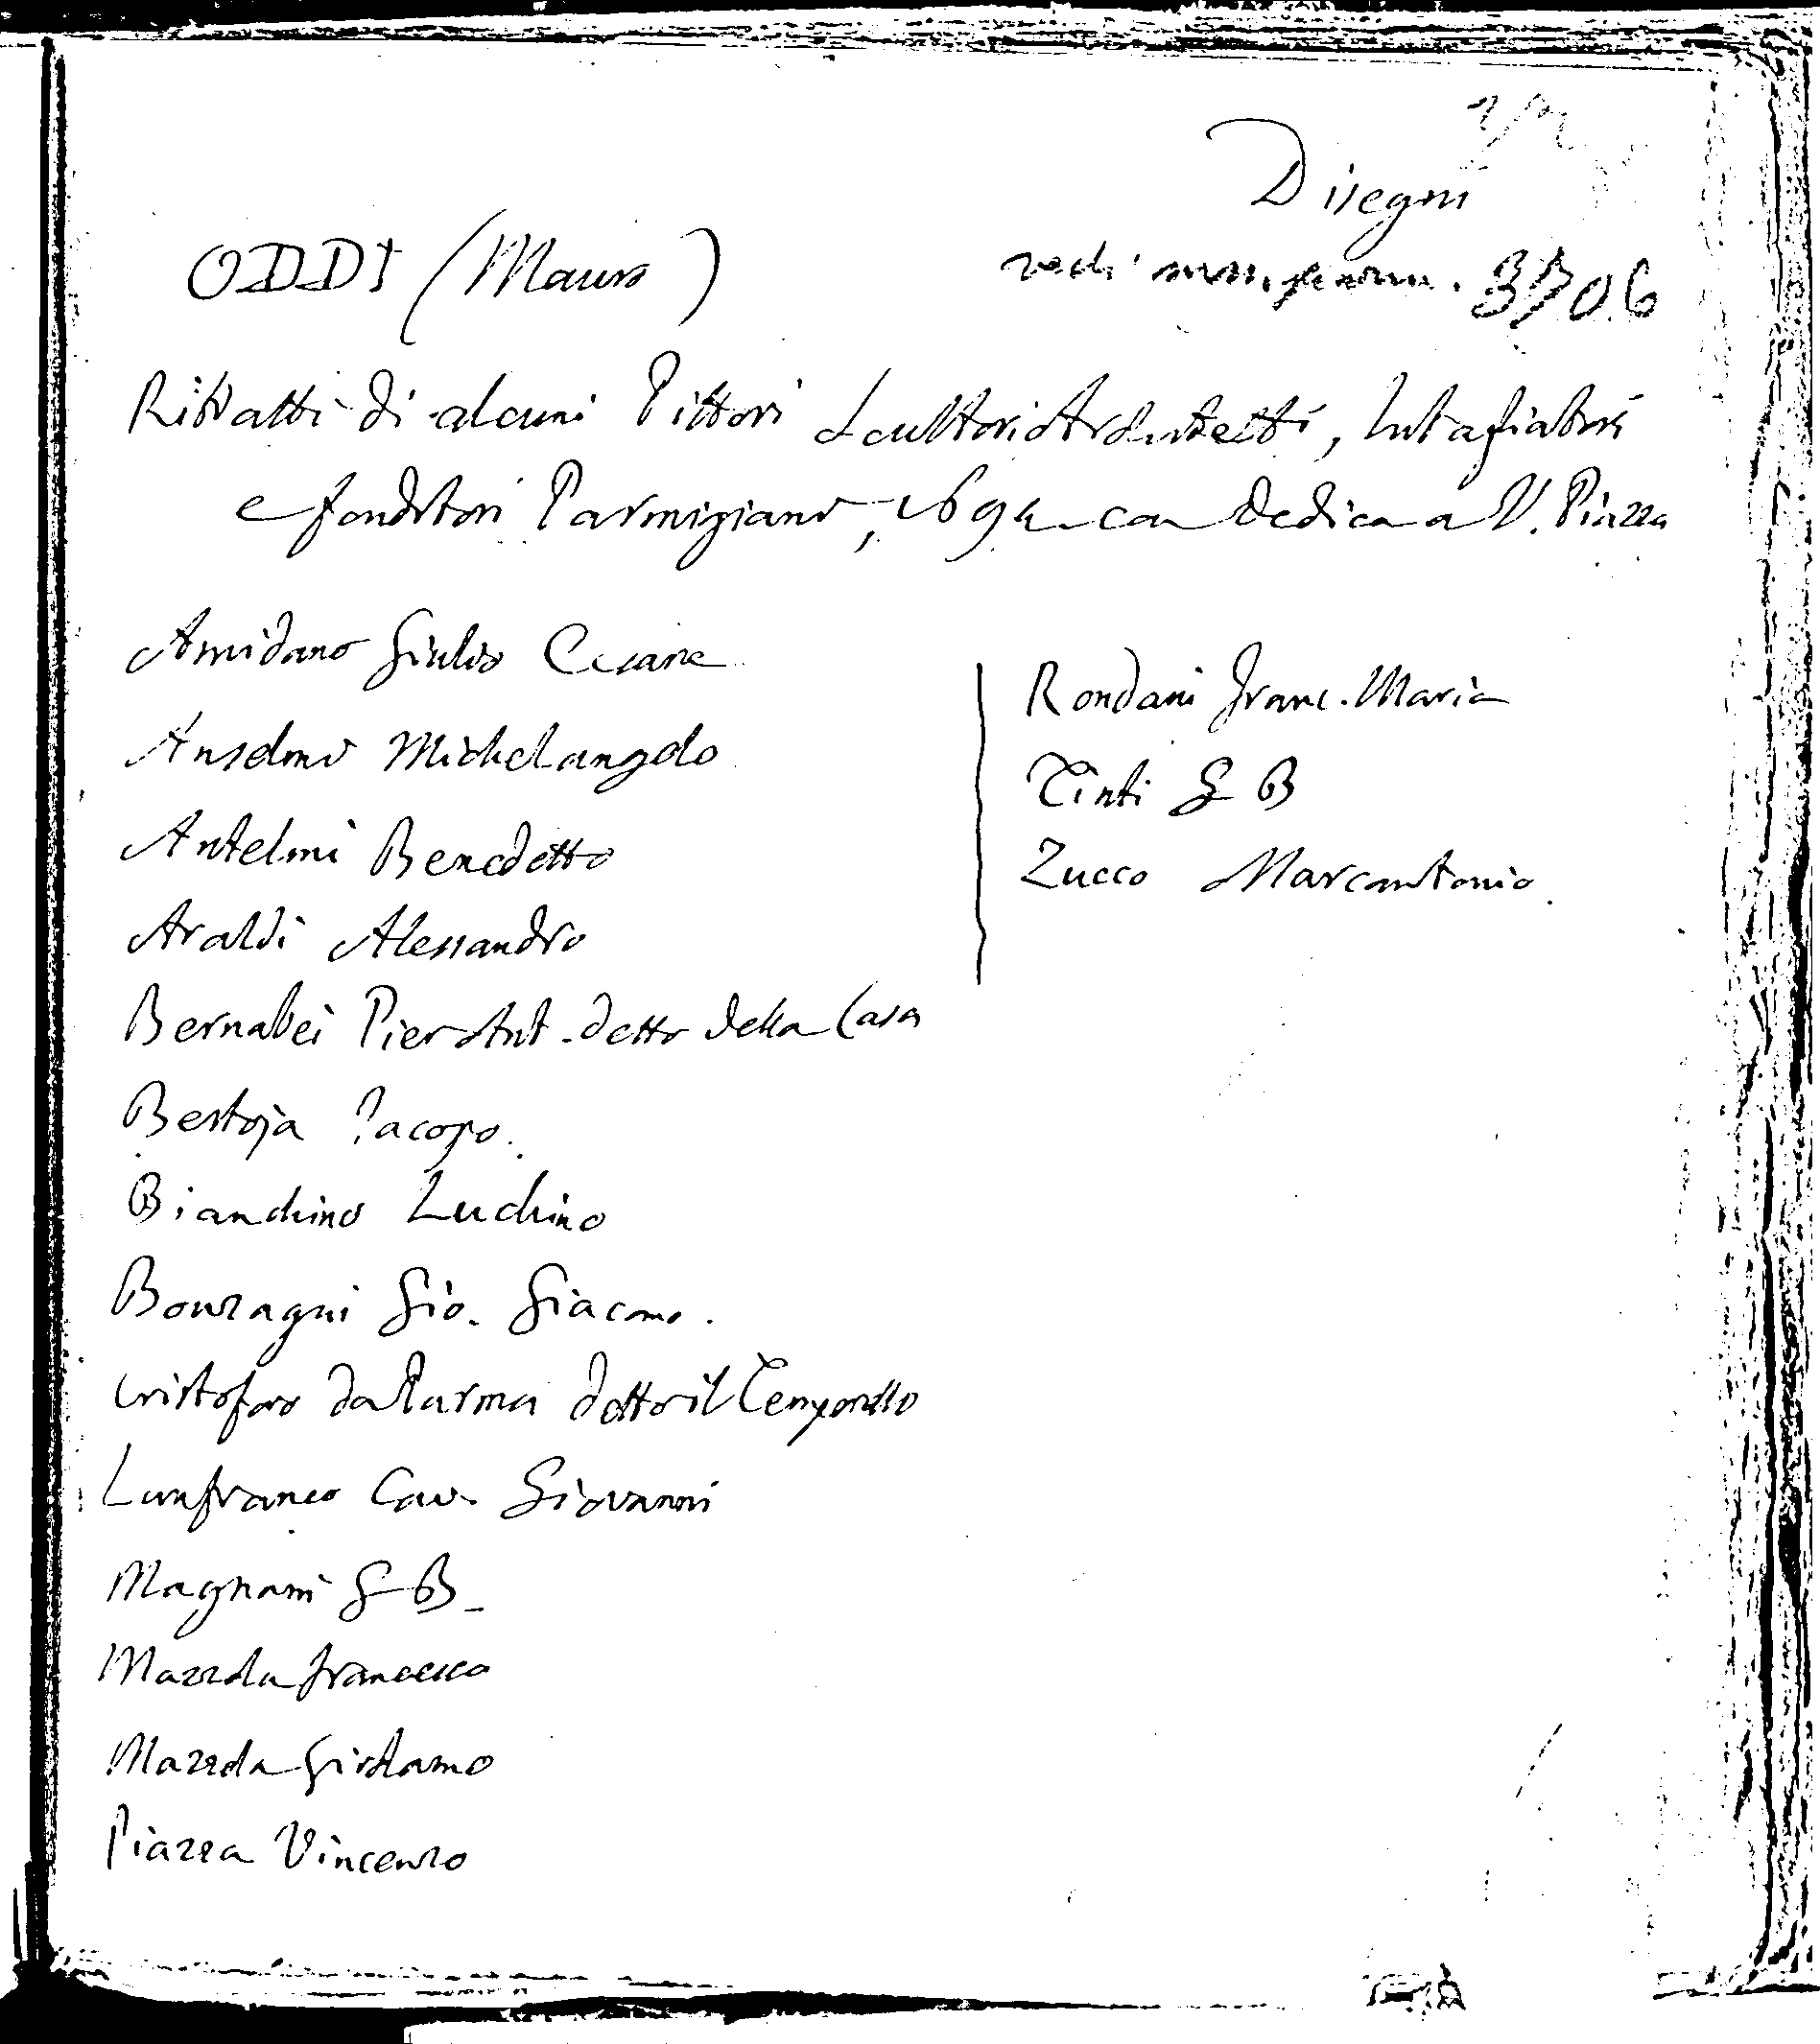 Disegni
ODDI (Mauro)
vedi mss. parm. 3706
Ritratti di alcuni Pittori Scultori Architetti, Intagliatori
e fonditori Parmigiani, 1694 con dedica a V. Piazza
Amidano Giulio Cesare
Anselmi Michelangelo
Antelmi Benedetto
Araldi Alessandro
Bernabei Pier Ant. detto della Casa
Bertoja Jacopo.
Bianchino Luchino
Bonzagni Gio. Giacomo.
Cristoforo da Parma detto il Temporello
Lanfranco Cav. Giovanni
Magnani G B
Mazzola Francesco
Mazzola Girolamo
Piazza Vincenzo
Rondani Franc. Maria
Tinti G B
Zucco Marcantonio.